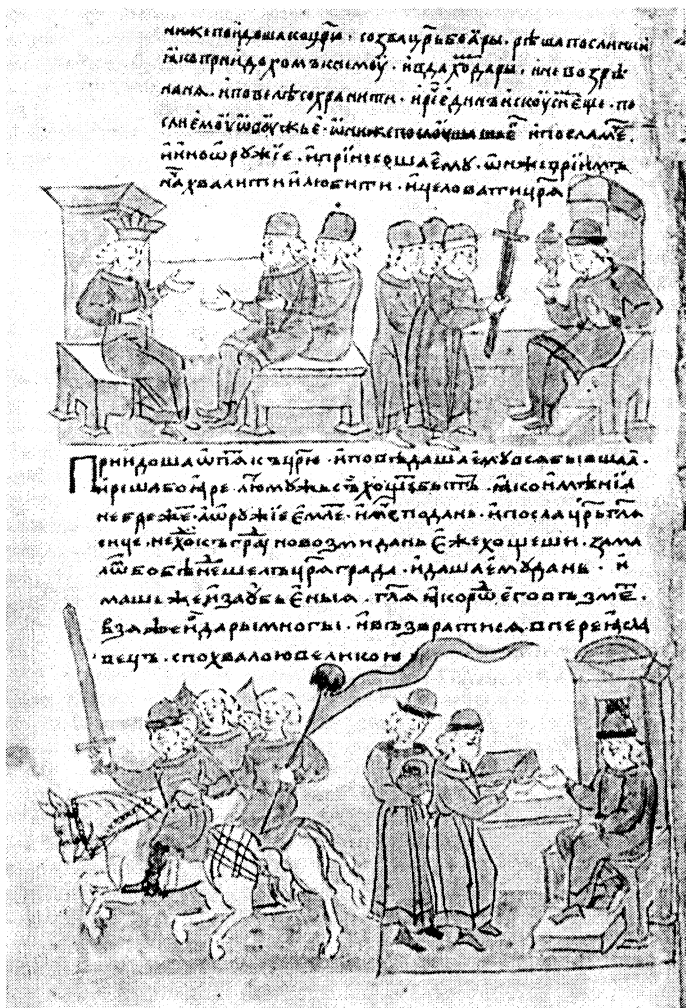 ниже прїидоша ко цр҃ю · созва цр҃ь боѧры · рѣша посланиі
ꙗко приидохомъ к немоу · и вдахоⷨ дары · и не возрѣ
на нѧ · и повелѣ сохранити · и рⷱе единъ искоуси еще · по
сли емоу ѡроужье · ѡни же послоушаша еⷢ и послаша еⷨ
и ино ѡружїе · и принесоша ему · ѡн же приимъ
наⷱ хвалити и любити · и целовати цр҃ѧ
Приидоша ѡпѧⷮ къ цр҃ю · и повѣдаша ему всѧ бывшаѧ ·
и реша боѧре · люⷮ мужь съ хощеⷮ быть · ꙗко имѣнїѧ
не брежеⷮ · а ѡружїе емлеⷮ · имисѧ по дань · и посла цр҃ь глѧ
сице · не хоⷣи къ граⷣу но возми дань еже хощеши · за ма
лѡ бо бѣ не шелъ цр҃ѧграда · и даша ему дань · и
машь же и за убьеныѧ · глѧ ꙗко роⷣ его възмеⷮ ·
взѧ же и дары многы · и възвратисѧ в переꙗсла
вець · с похвалою великою